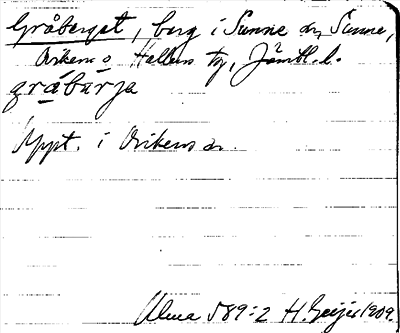 Gråberget, berg i Sunne sn, Sunne,
Ovikens o Hallens tg, Jämtl. l.
gråbärja
Uppt. i Ovikens sn.
Ulma 589:2 H. Geijer 1909.